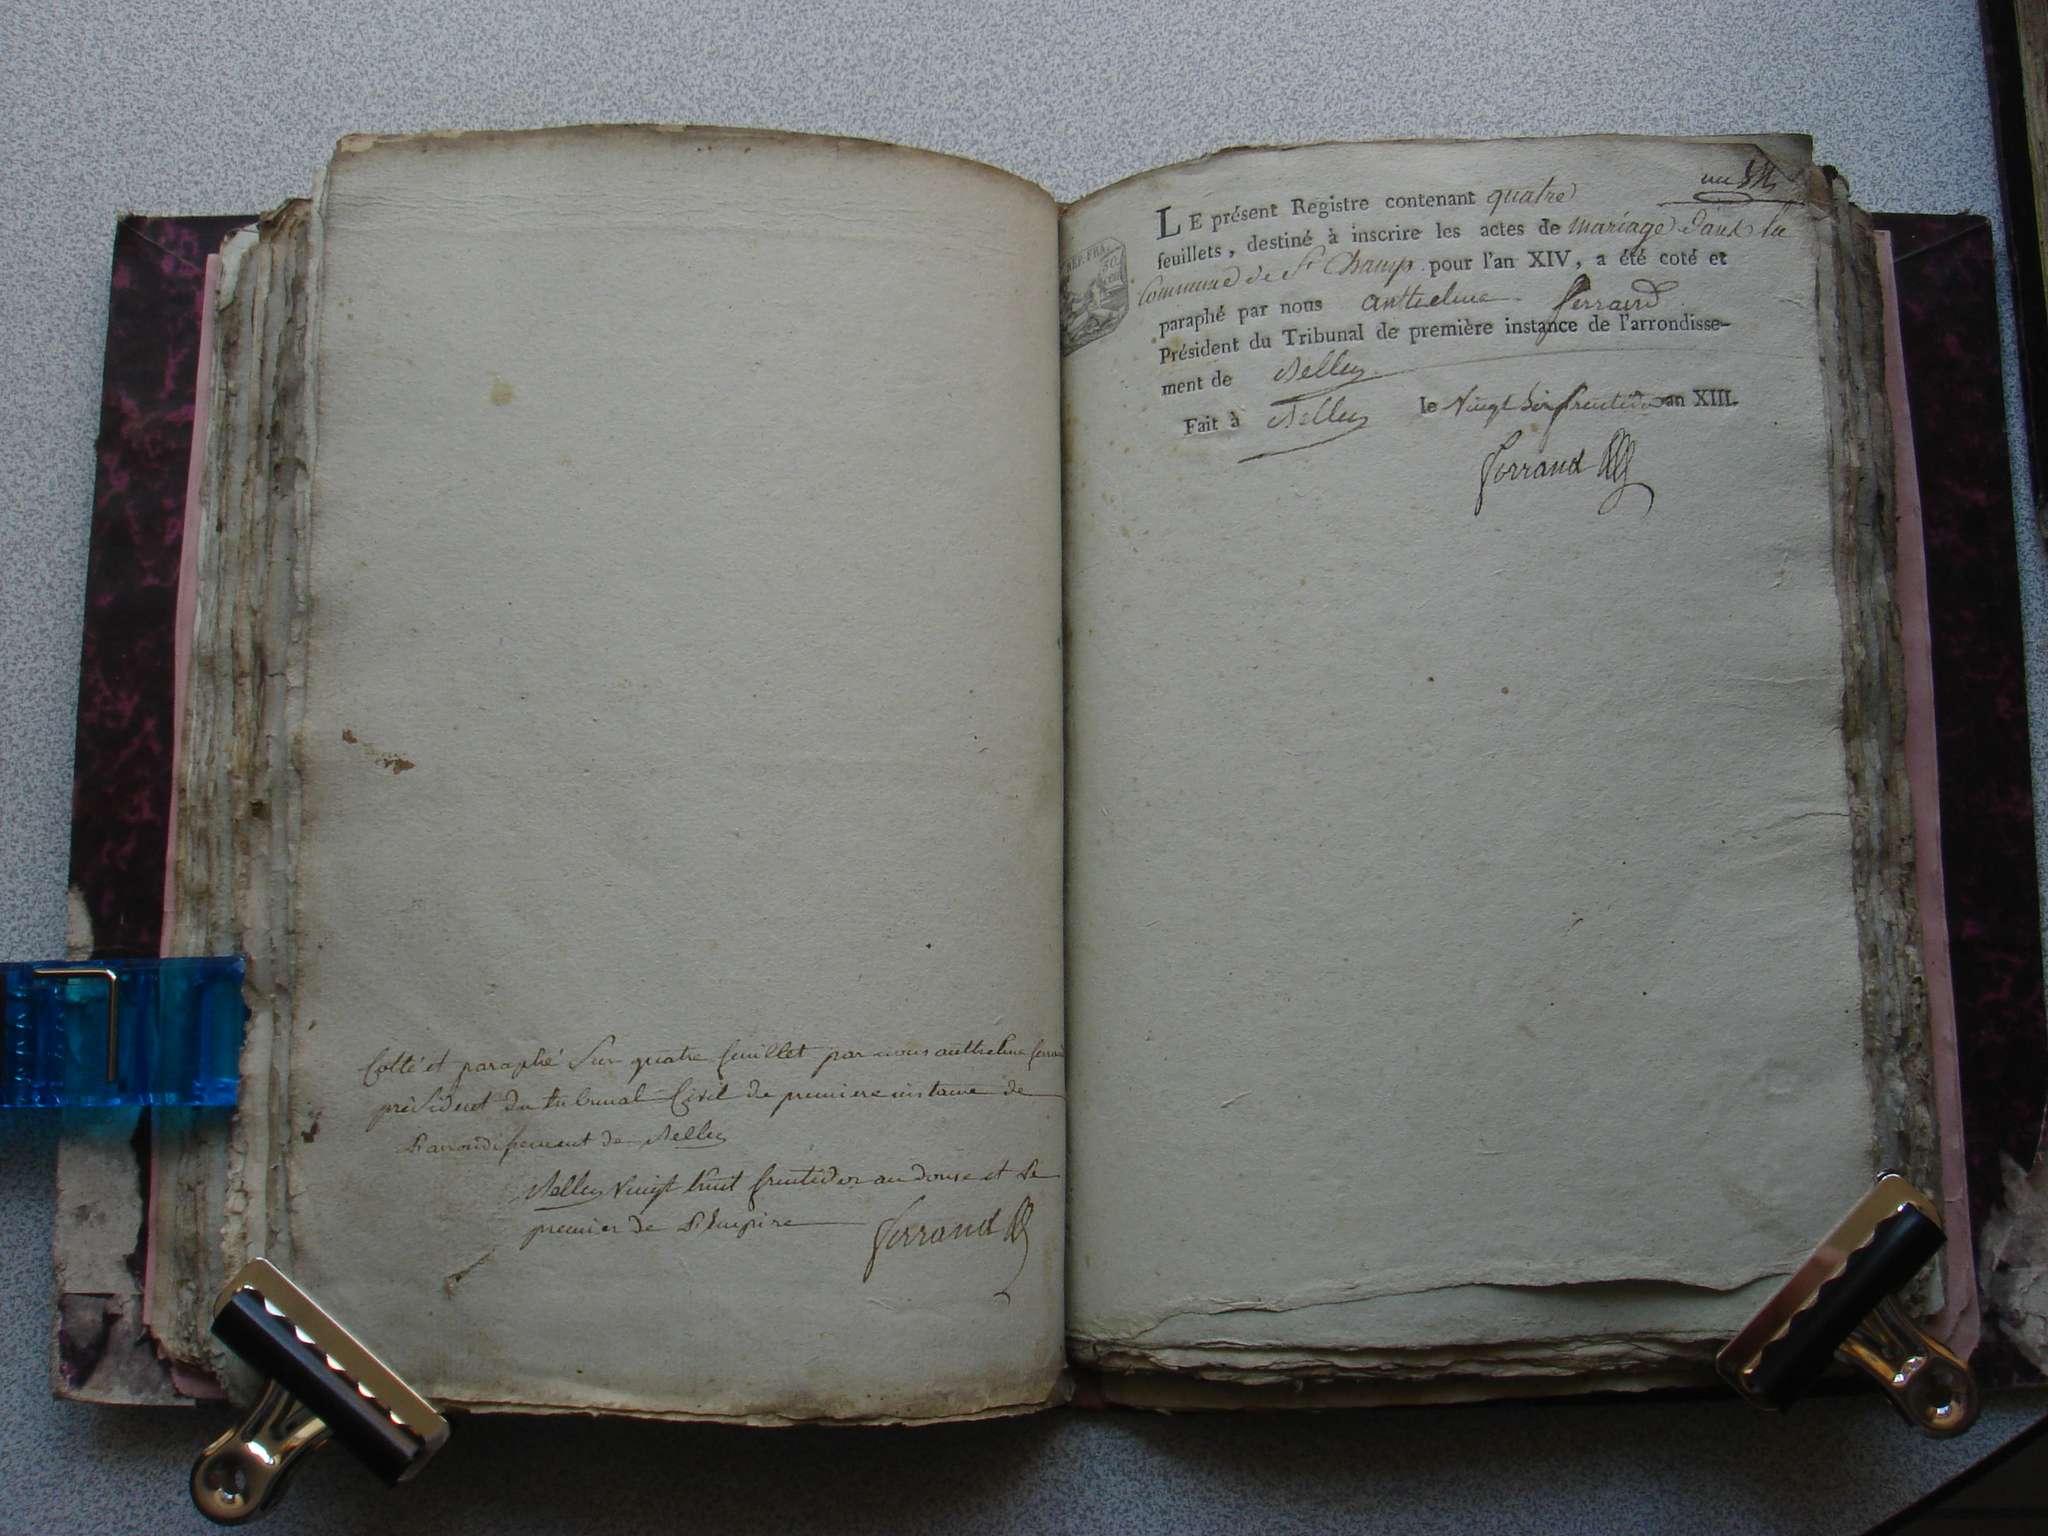 Cotté et paraphé Sur quatre feuillet par nous anthelme ferrand
président du tribunal Civil de premiere instance de
L'arrondissement de Belley
Belley Vingt huit fructidor an douse et Le
premier de L'Empire
ferrand
un
REP. FRA.
LE présent Registre contenant quatre
feuillets, destiné à inscrire les actes de mariage dans la
Commune de St Champ pour l'an XIV, a été coté et
paraphé par nous anthelme ferrand
Président du Tribunal de première instance de l'arrondisse-
ment de Belley
Fait à Belley le Vingt Six fructidor an XIII.
ferrand